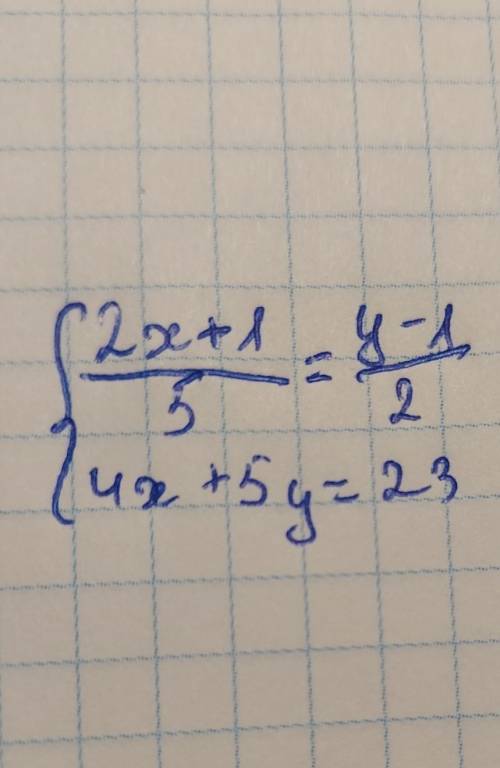 2x+1/5 = y-1/2
4x+5y=23